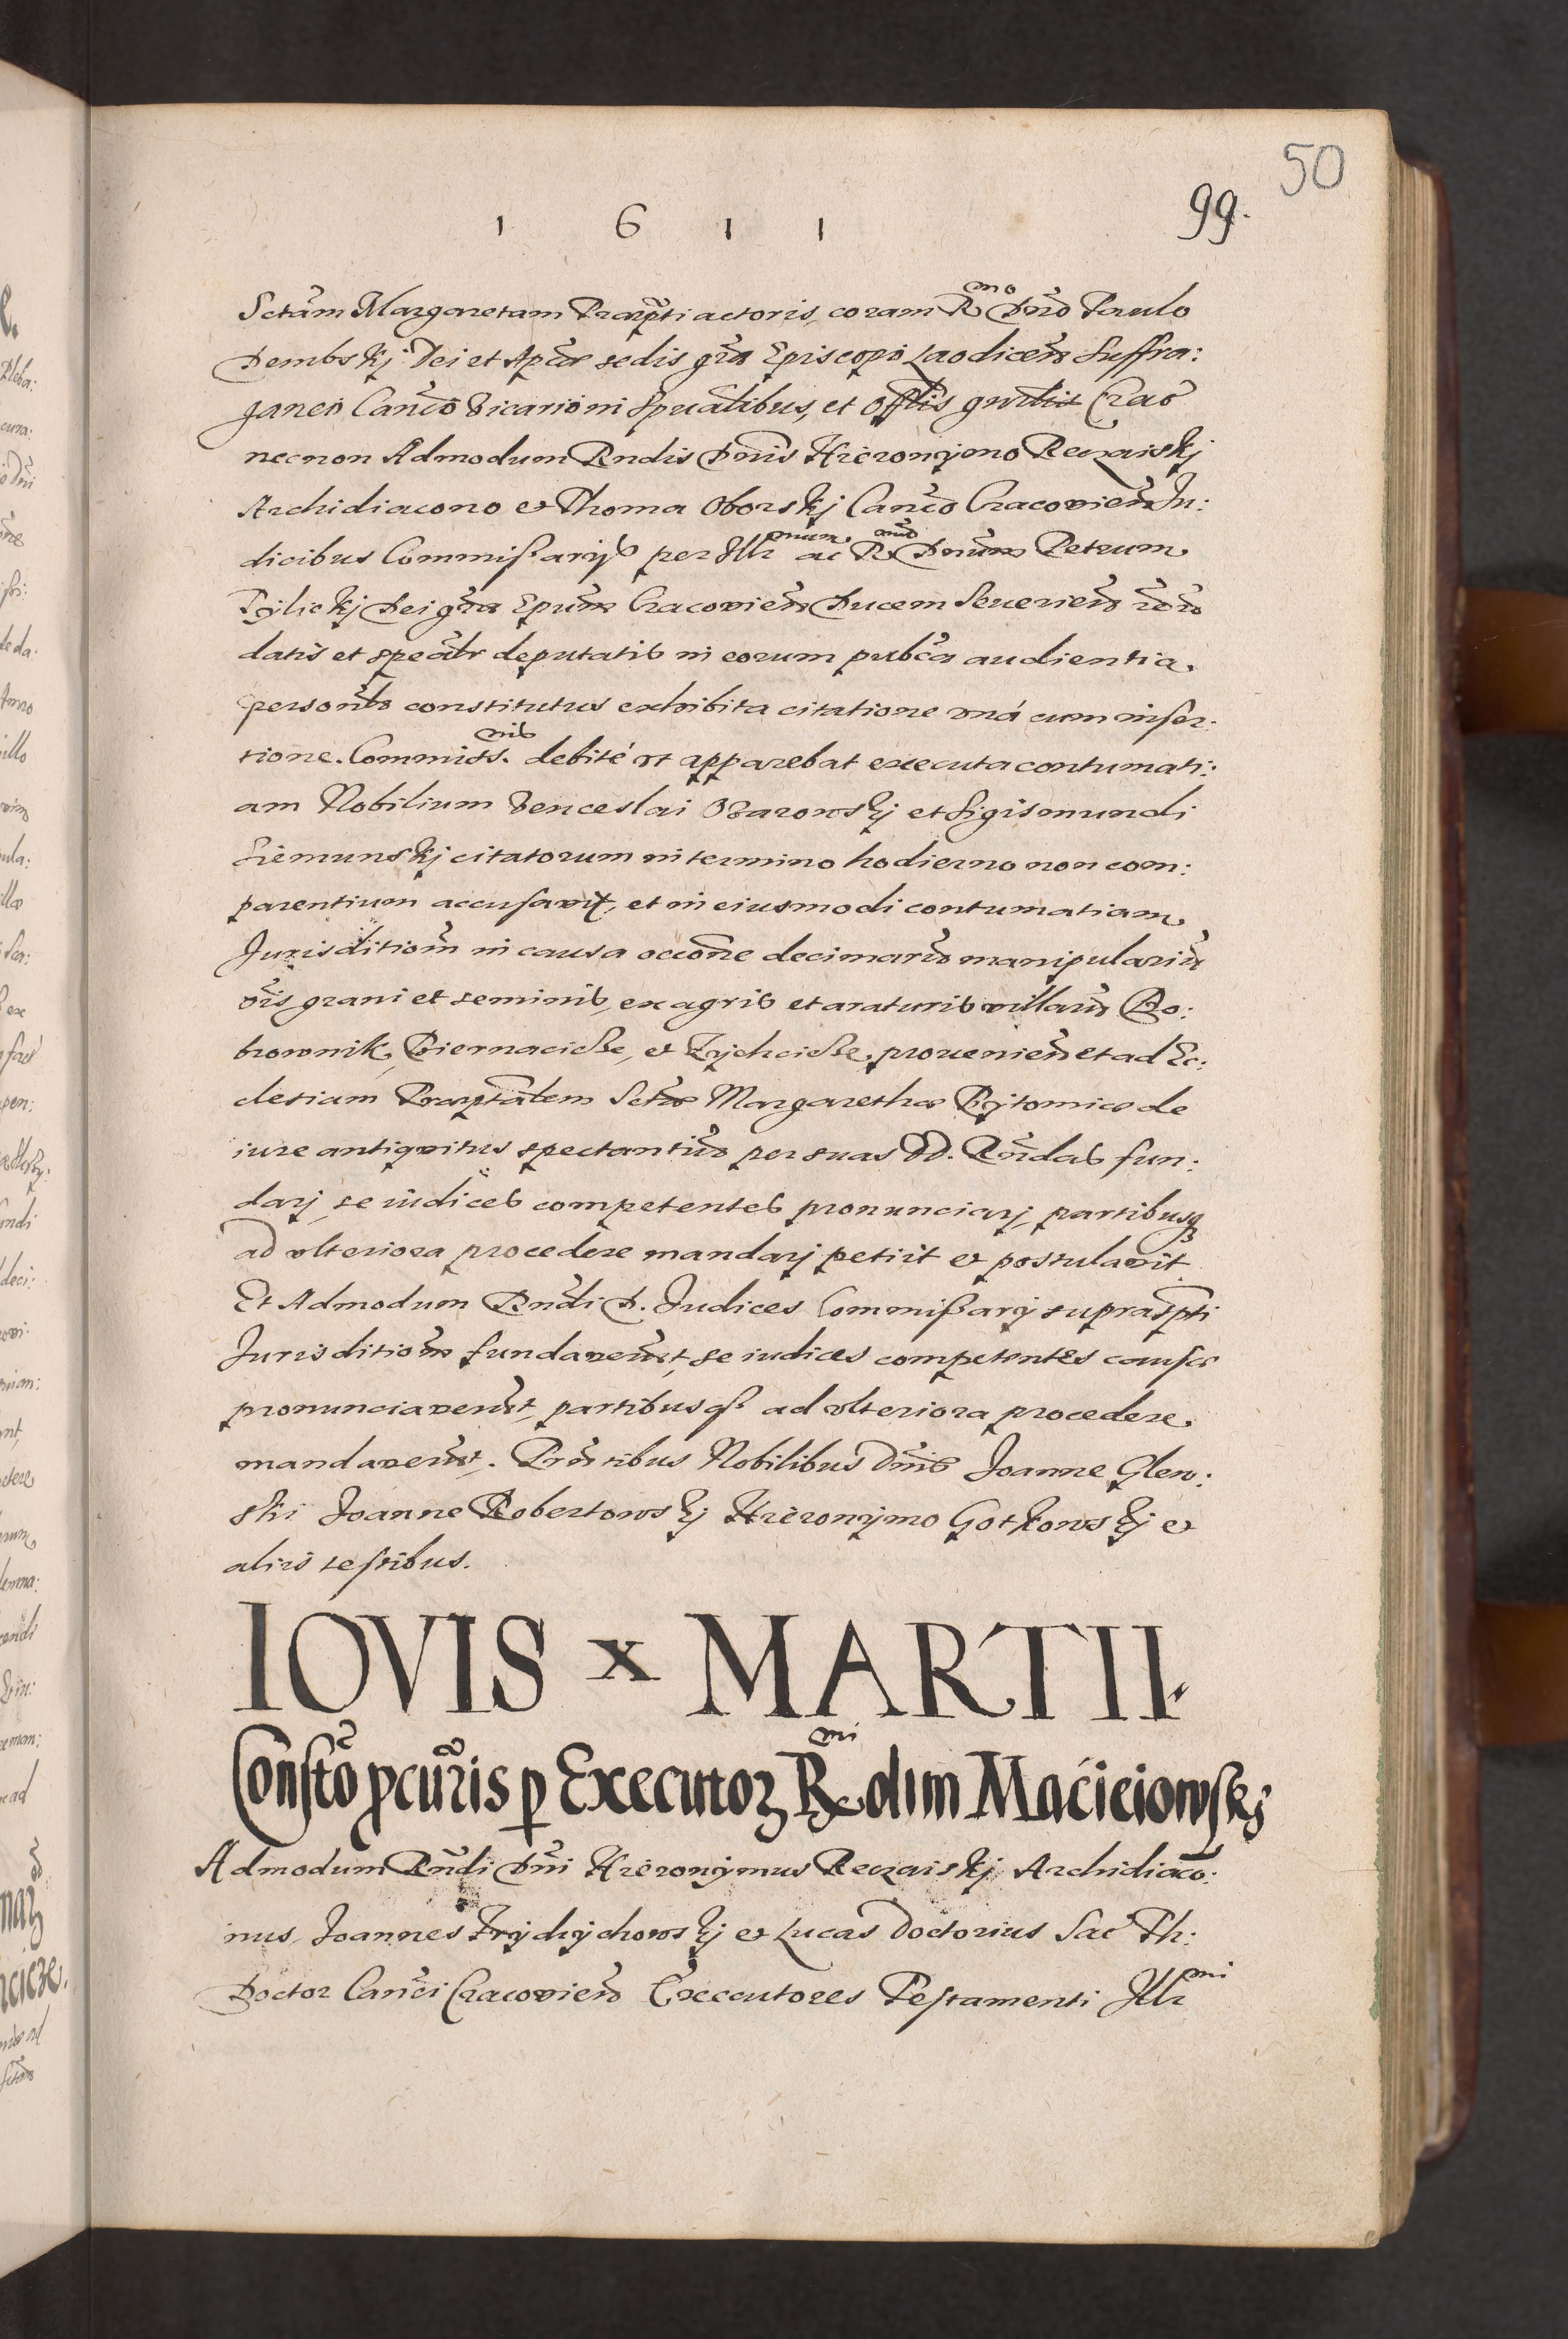 50
99.
1 6 1 1
Sctam Margaretam Praepti actoris, coram R mo Dno Paulo
Dembskj Dei et Aplcae sedis gra Episcopo Laodicen Suffra:
ganeo Canco Vicario in Spualibus, et Offlis gnrlis Crac
necnon Admodum Rndis Dnis Hieronymo Reczaiskj
Archidiacono et Thoma Oborskj Canco Cracovien Ju:
dicibus Commissarijs per Illr mum ac R mu Dnum Petrum
Tylickj Dei gra Epum Cracovien Ducem Severien
datis et spealr deputatis in eorum pubca audientia
personlr constitutus exhibita citatione una cum inser:
tione. Commiss. nis debite ut apparebat executa contumati:
am Nobilium Venceslai Ozarowskj et Sigismundi
Siemunskj citatorum in termino hodierno non com:
parentium accusavit, et in eiusmodi contumatiam
Jurisditiom in causa occone decimaru manipulariu
ois grani et seminis, ex agris et araturis villaru Bo:
brownik, Biernacicze, et Zychcicze, provenien et ad Ec:
clesiam Praeptalem Sctae Margarethae Bytomiae de
iure antiquitus spectantiu per suas DD. Rndas fun:
darj, se iudices competentes pronunciarj, partibusq
ad ulteriora procedere mandarj petiit et postulavit
Et Admodum Rndi D. Judices Commissarij suprascpti
Jurisditiom fundaverut, se iudices competentes causae
pronunciaverut, partibusq ad ulteriora procedere
mandaverut. Pntibus Nobilibus Dnis Joanne Glew:
ski Joanne Robertowskj Hieronymo Gotkowskj et
aliis testibus.
IOVIS X MARTII.
Consto pcuris p Executoz R mi olim Macieiowskj
Admodum Rndi Dni Hieronymus Reczaiskj Archidiaco:
nus, Joannes Trychychowskj et Lucas Doctorius Sac Th:
Doctor Canci Cracovien Executores Testamenti Illr mi